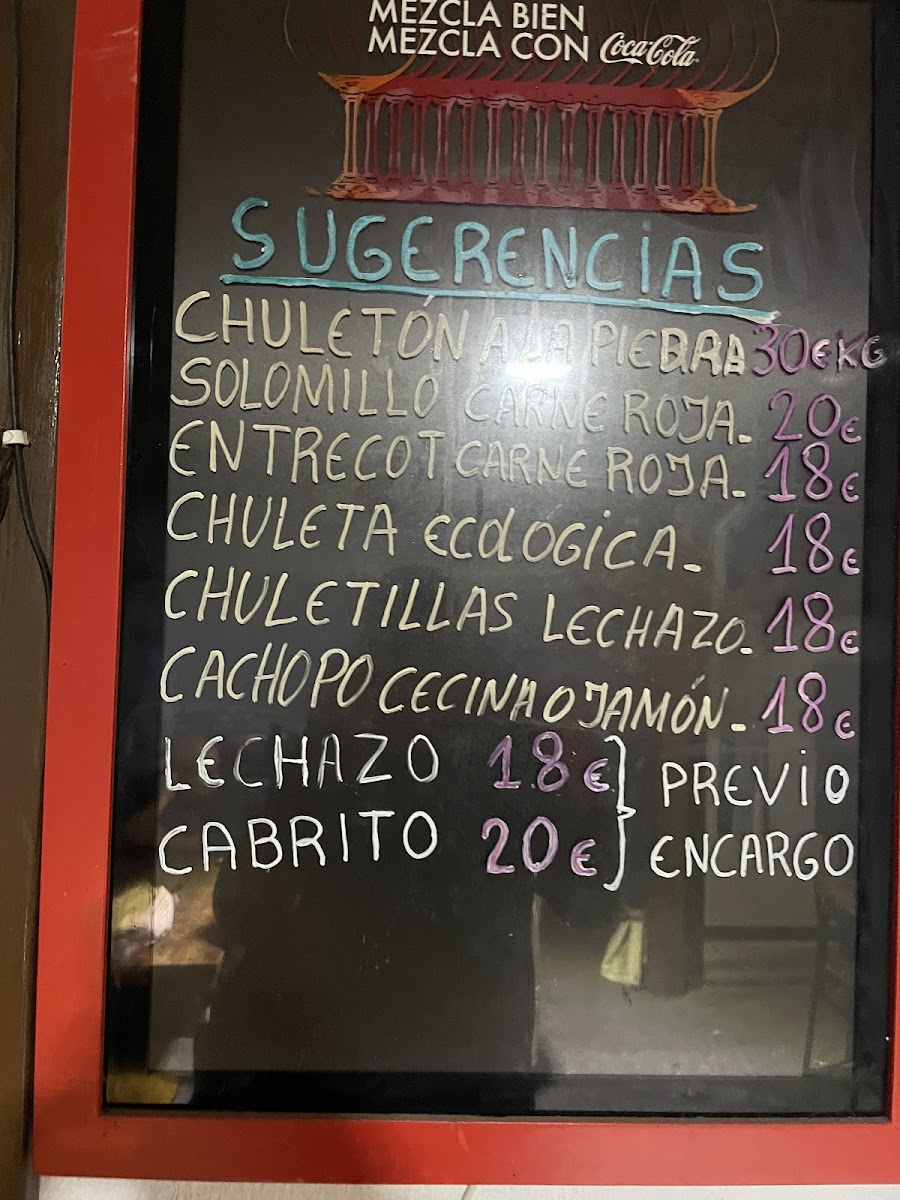 MEZCLA BIEN
MEZCLA CON Coca-Cola
SUGERENCIAS
CHULETÓN A LA PIEDRA 30€KG
SOLOMILLO CARNE ROJA. 20€
ENTRECOT CARNE ROJA. 18€
CHULETA ECOLOGICA. 18€
CHULETILLAS LECHAZO. 18€
CACHOPO CECINA O JAMÓN. 18€
LECHAZO 18€ } PREVIO
CABRITO 20€ } ENCARGO